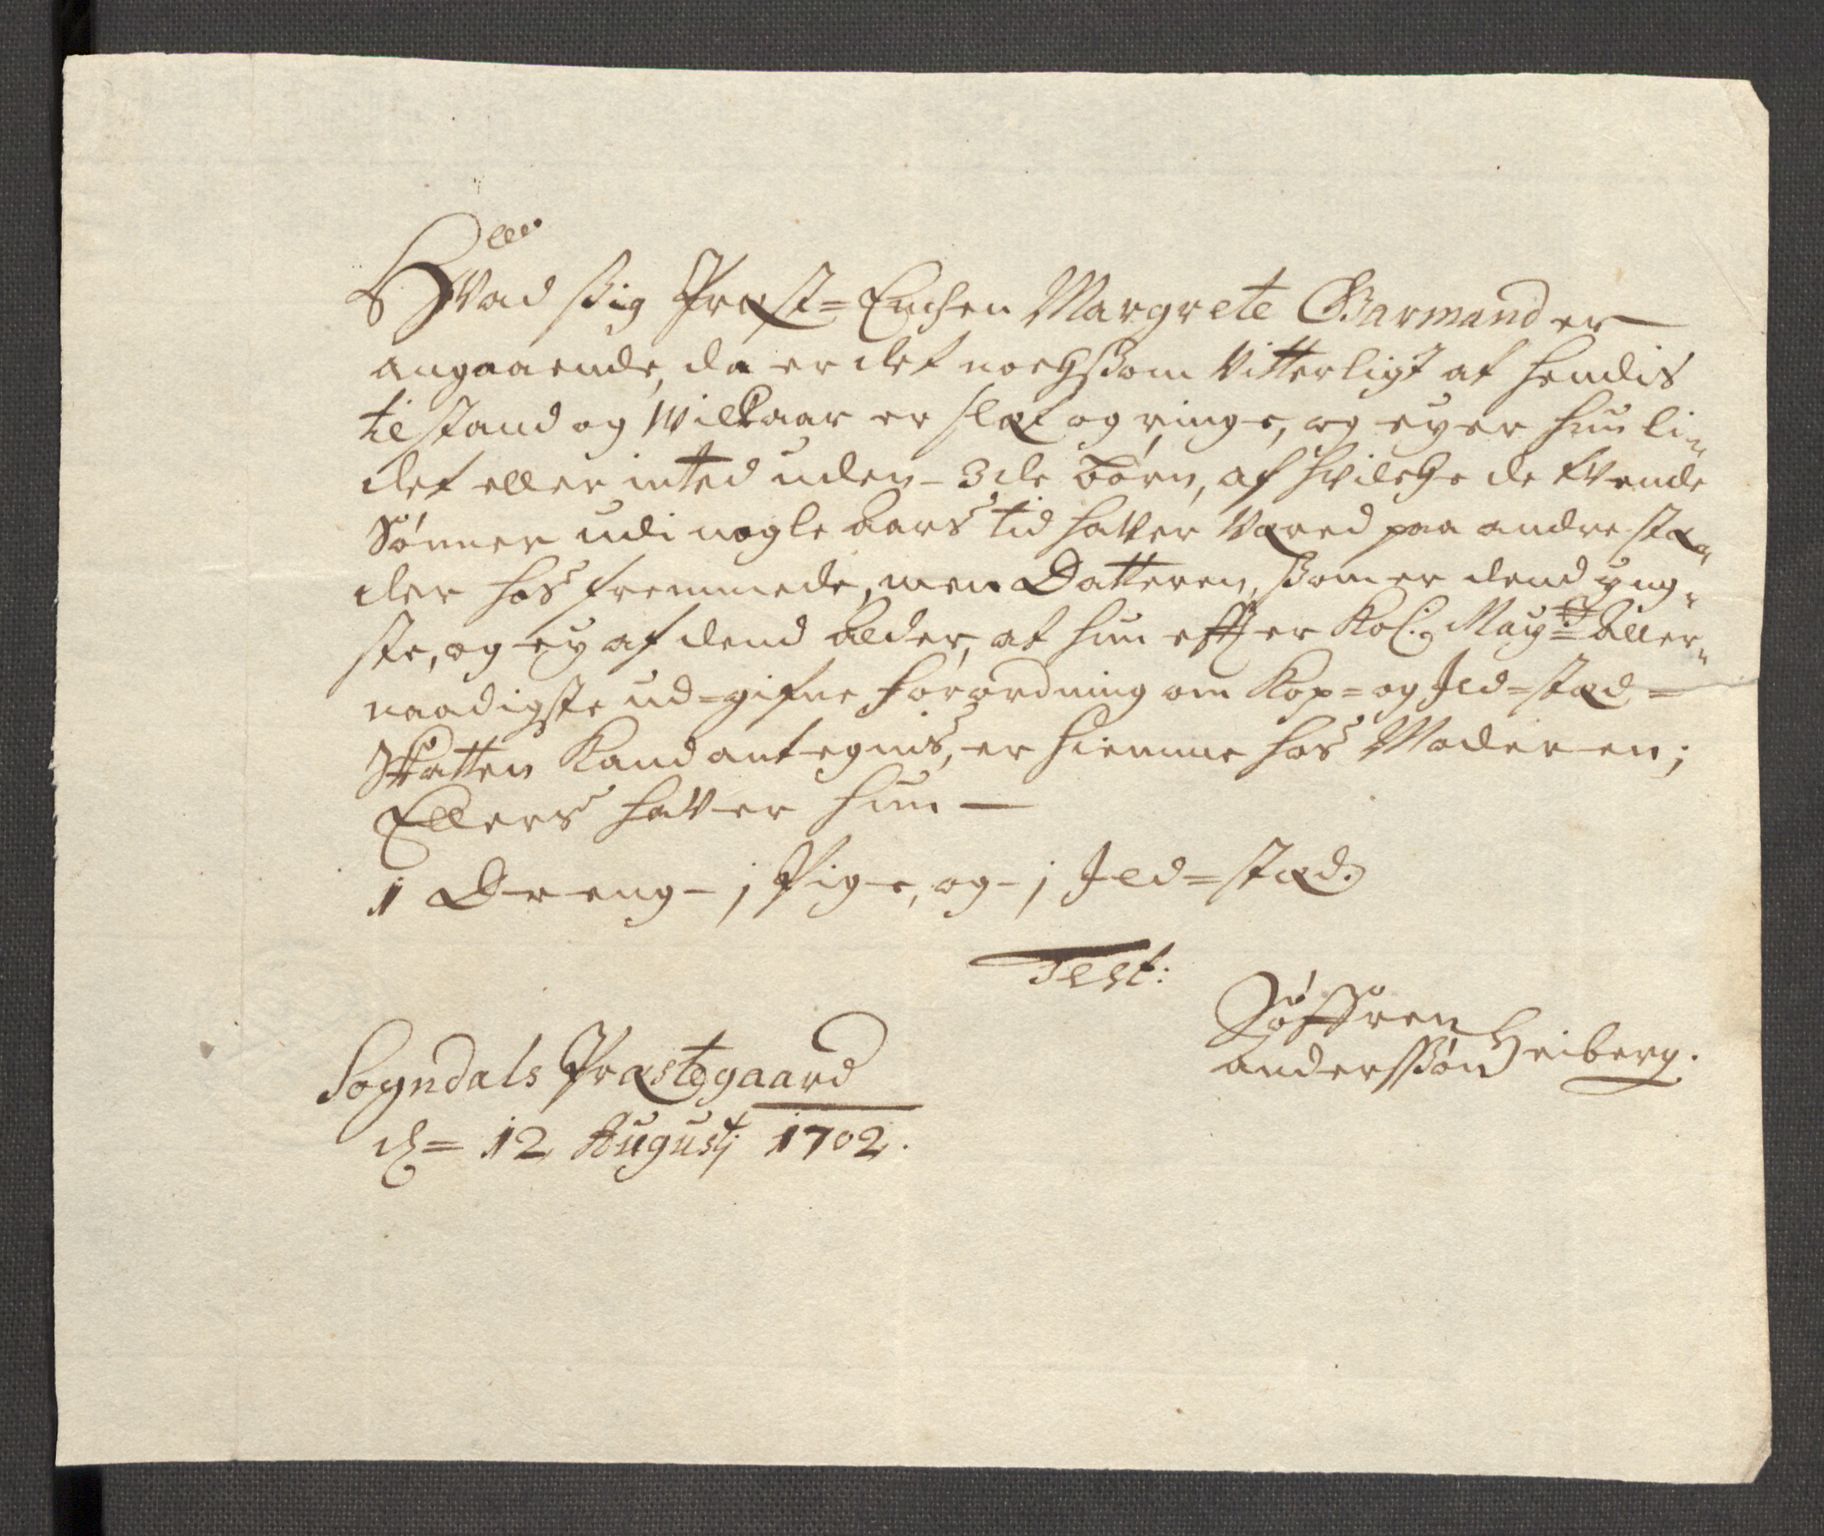 Hvad ßig Præst=Enchen Margrete Garmand er
angaaende, da er det nochßom Vitterligt at hendis
tilstand og Wilkaar er slæt og ringe, og eyer hun li-
det eller inted uden 3de børn, af hvilche de tvende
Sønner udi nogle Aars tid haver været paa andre stæ-
der hos fremmede, men Datteren, ßom er dend yng-
ste, og ey af dend Alder, at hun effter Kol: Mayts Aller-
naadigste ud=gifne forordning om Kop= og Ild=stæd=
Skatten Kand antegnis, er hiemme hos Moderen;
Ellers haver hun
1 Dreng - 1 Pige, og - 1 Ild=stæd.
Test:
Søffren
anderßøn Heiberg.
Sogndals Præstegaard
d= 12 Augusti 1702.